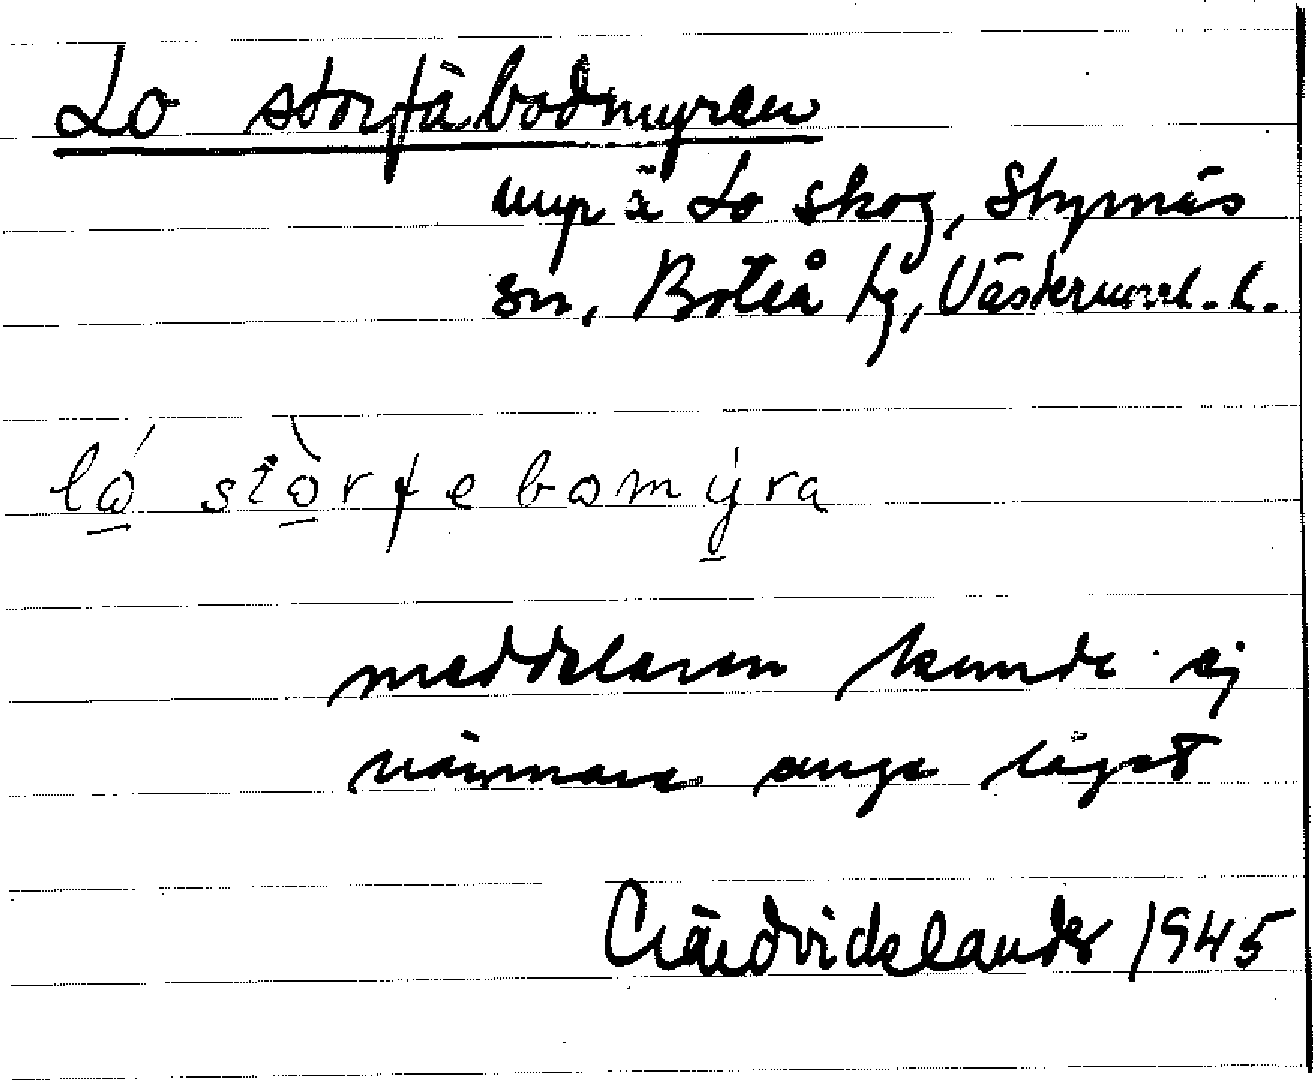 Lo storfäbodmyren
myr å Lo skog, Styrnäs
sn, Boteå tg, Västernorrl. l.
ló stòrfebomýra
meddelaren kunde ej
närmare ange läget
1945